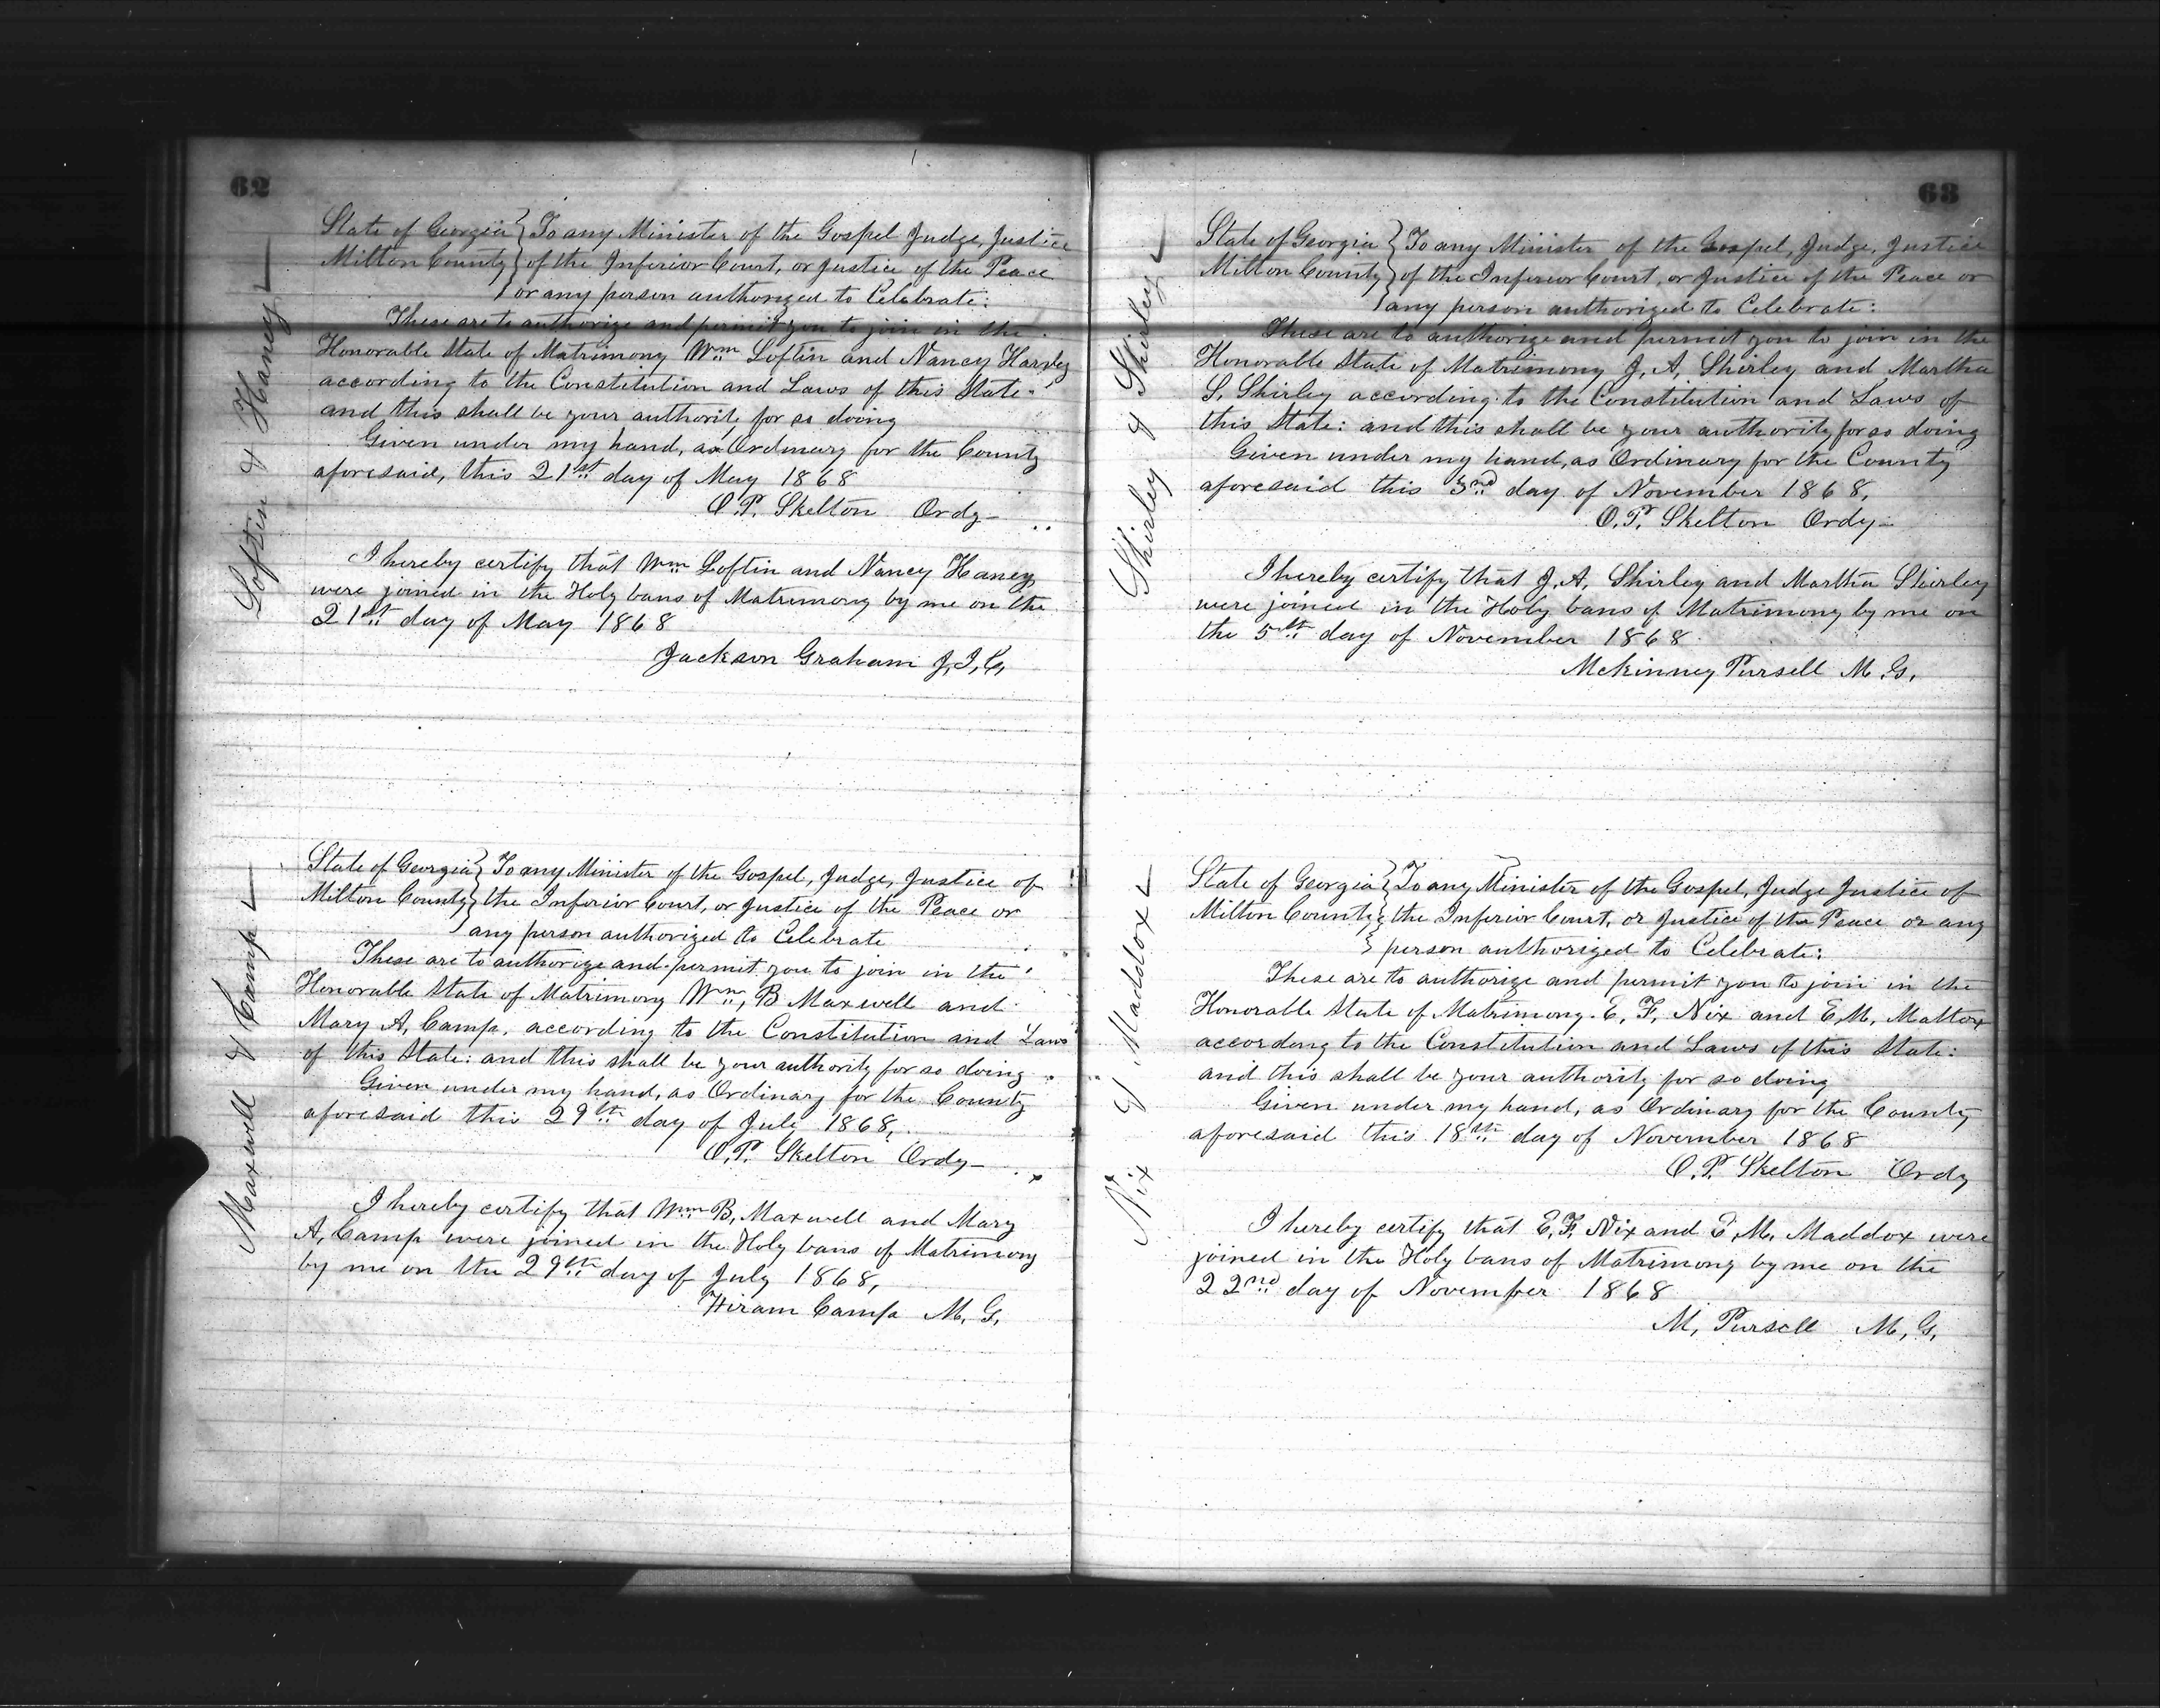 62
Loftin & Haney
State of Georgia } To any Minister of the Gospel Judge, Justice
Milton County } of the Inferior Court, or Justice of the Peace
} or any person authorized to Celebrate:
These are to authorize and permit you to join in the
Honorable State of Matrimony Wm Loftin and Nancy
according to the Constitution and Laws of this State
and this shall be your authority for so doing
Given under my hand, as Ordinary for the County
aforesaid, this 21st day of May 1868
O.P. Skelton Ordy
I hereby certify that Wm Loftin and Nancy Haney
were joined in the Holy bans of Matrimony by me on the
21st day of May 1868
Jackson Graham J.I.C.
Maxwell & Camp
State of Georgia } To any Minister of the Gospel, Judge, Justice of
Milton County } the Inferior Court, or Justice of the Peace or
} any person authorized to Celebrate
These are to authorize and permit you to join in the
Honorable State of Matrimony Wm, B Maxwell and
Mary A, Camp, according to the Constitution and Laws
of this State: and this shall be your authority for so doing
Given under my hand, as Ordinary for the County
aforesaid this 29th day of July 1868,
O.P. Skelton Ordy
I hereby certify that Wm B, Maxwell and Mary
A, Camp were joined in the Holy bans of Matrimony
by me on the 29th day of July 1868,
Hiram Camp M. G.
63
Shirley & Shirley
State of Georgia } To any Minister of the Gospel, Judge, Justice
Milton County } of the Inferior Court, or Justice of the Peace or
} any person authorized to Celebrate:
These are to authorize and permit you to join in the
Honorable State of Matrimony J, A, Shirley and Martha
S. Shirley according to the Constitution and Laws of
this State: and this shall be your authority for so doing
Given under my hand, as Ordinary for the County
aforesaid this 3rd day of November 1868,
O.P. Skelton Ordy
I hereby certify that J.A. Shirley and Martha Shirley
were joined in the Holy bans of Matrimony by me on
the 5th day of November 1868
Mckinney Pursell M.G.
Nix & Maddox
State of Georgia } To any Minister of the Gospel, Judge Justice of
Milton County } the Inferior Court, or Justice of the Peace or any
} person authorized to Celebrate:
These are to authorize and permit you to join in the
Honorable State of Matrimony E, F, Nix and E,M, Mattox
according to the Constitution and Laws of this State:
and this shall be your authority for so doing
Given under my hand, as Ordinary for the County
aforesaid this 18th day of November 1868
O.P. Skelton Ordy
I hereby certify that E,F, Nix and E,M, Maddox were
joined in the Holy bans of Matrimony by me on the
22nd day of November 1868
M, Pursell M,G,